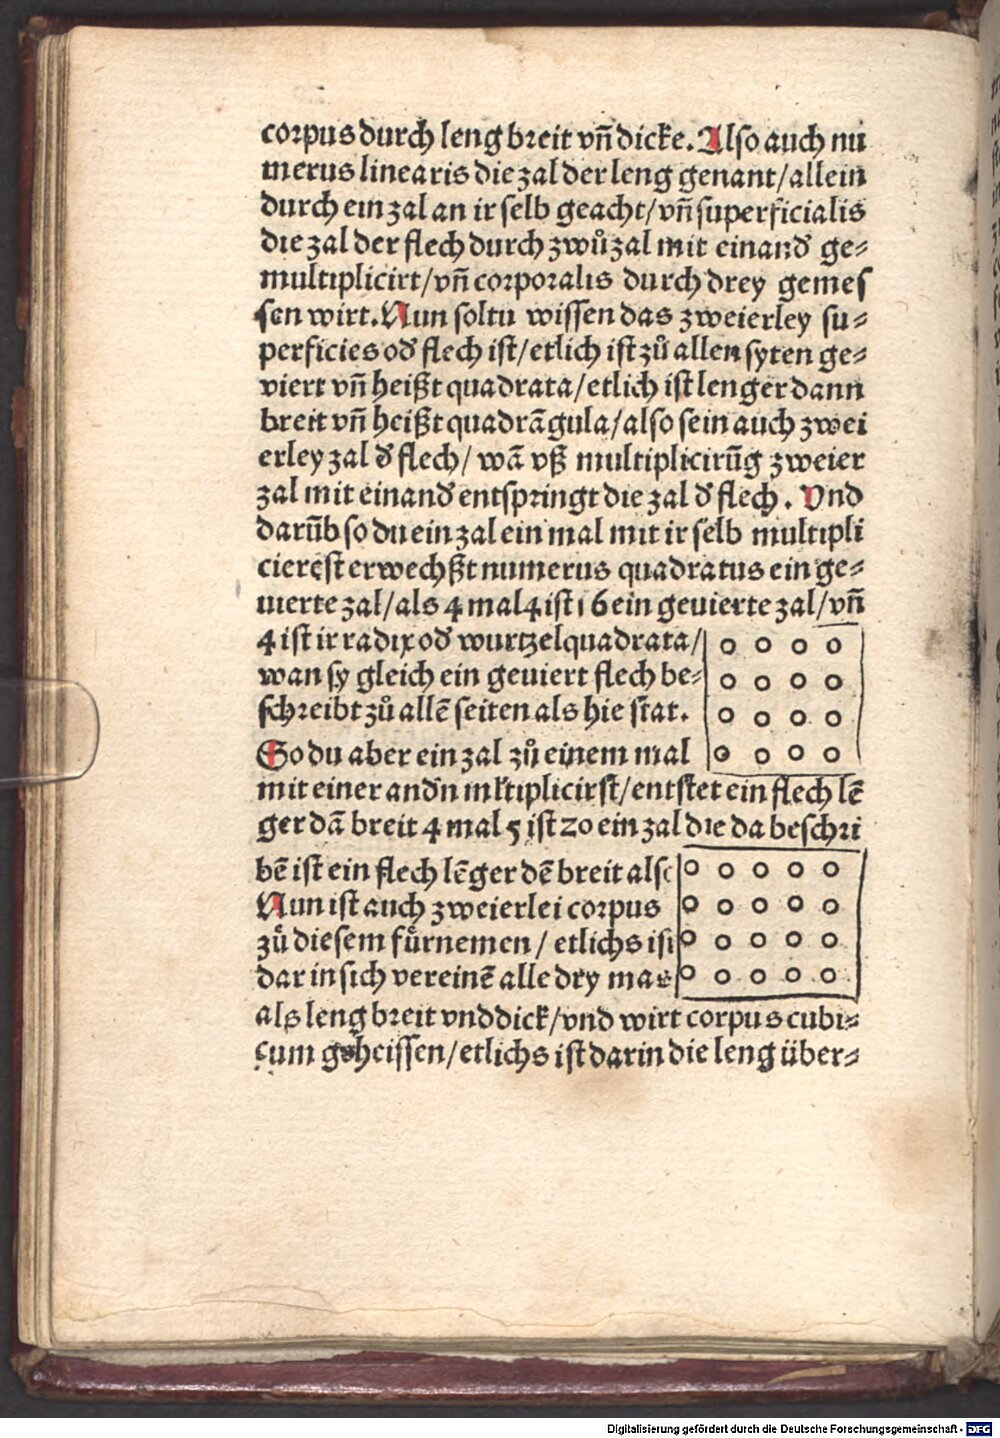 corpus durch leng breit vñ dicke. Also auch nu
merus linearis die zal der leng genant/allein
durch ein zal an ir selb geacht/vñ superficialis
die zal der flech durch zwů zal mit einand̕ ge⸗
multiplicirt/vñ corporalis durch drey gemes
sen wirt. Nun soltu wissen das zweierley su⸗
perficies od̕ flech ist/etlich ist zů allen syten ge⸗
viert vñ heißt quadrata/etlich ist lenger dann
breit vñ heißt quadrãgula/also sein auch zwei
erley zal d̕ flech/ wã vß multiplicirũg zweier
zal mit einand̕ entspringt die zal d̕ flech. Vnd
darũb so du ein zal ein mal mit ir selb multipli
cierest erwechßt numerus quadratus ein ge⸗
uierte zal/als 4 mal 4 ist 16 ein geuierte zal/vñ
4 ist ir radix od̕ wurtzel quadrata/
wan sy gleich ein geuiert flech be⸗
schreibt zů allẽ seiten als hie stat.
So du aber ein zal zů einem mal
mit einer and̕n mltiplicirst/entstet ein flech lẽ
ger dã breit 4 mal 5 ist 20 ein zal die da beschri
bẽ ist ein flech lẽger dẽ breit also
Nun ist auch zweierlei corpus
zů diesem fürnemen/ etlichs ist
dar in sich vereinẽ alle dry mas
als leng breit vnd dick/vnd wirt corpus cubi⸗
cum geheissen/etlichs ist darin die leng über⸗
Digitalisierung gefördert durch die Deutsche Forschungsgemeinschaft - DFG